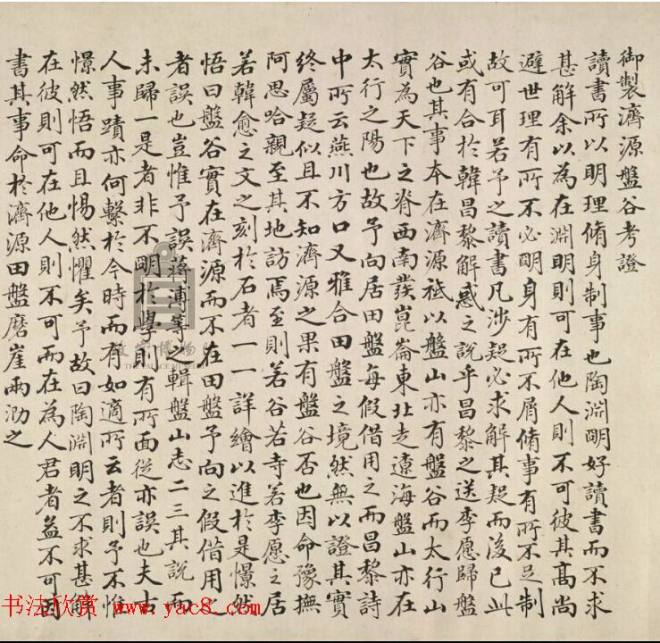 御製濟源盤谷考證
讀書所以明理脩身制事也陶淵明好讀書而不求
甚解余以為在淵明則可在他人則不可彼其高尚
避世理有所不必明身有所不屑脩事有所不足制
故可耳若予之讀書凡涉疑必求解其疑而後已此
或有合於韓昌黎解惑之說乎昌黎之送李愿歸盤
谷也其事本在濟源祗以盤山亦有盤谷而太行山
實為天下之脊西南發崑崙東北走遼海盤山亦在
太行之陽也故予向居田盤每假借用之而昌黎詩
中所云燕川方口又雅合田盤之境然無以證其實
終屬疑似且不知濟源之果有盤谷否也因命豫撫
阿思哈親至其地訪焉至則若谷若寺若李愿之居
若韓愈之文之刻於石者一一詳繪以進於是憬然
悟曰盤谷實在濟源而不在田盤予向之假借用之
者誤也豈惟予誤蔣溥等之輯盤山志二三其說而
未歸一是者非不明於學則有所面從亦誤也夫古
人事蹟亦何繫於今時而有如適所云者則予不惟
憬然悟而且惕然懼矣予故曰陶淵明之不求甚解
在彼則可在他人則不可而在為人君者益不可因
書其事命於濟源田盤磨崖兩泐之
书法欣赏 www.yac8.com